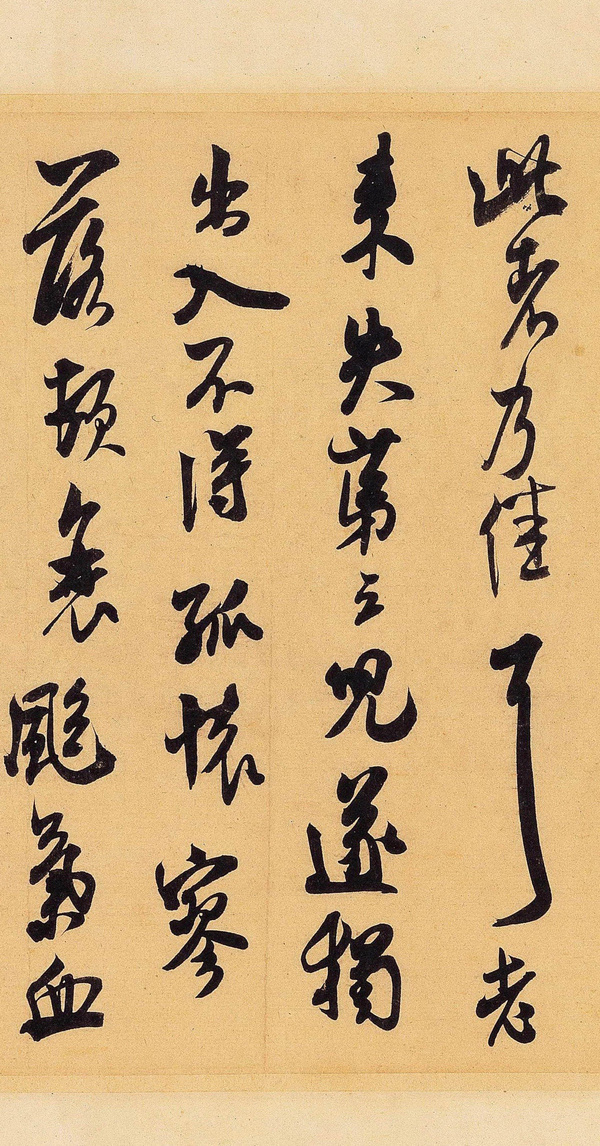 此者乃佳耳老
來失第三兒遂獨
出入不得孤懷寥
落頓衰颯氣血